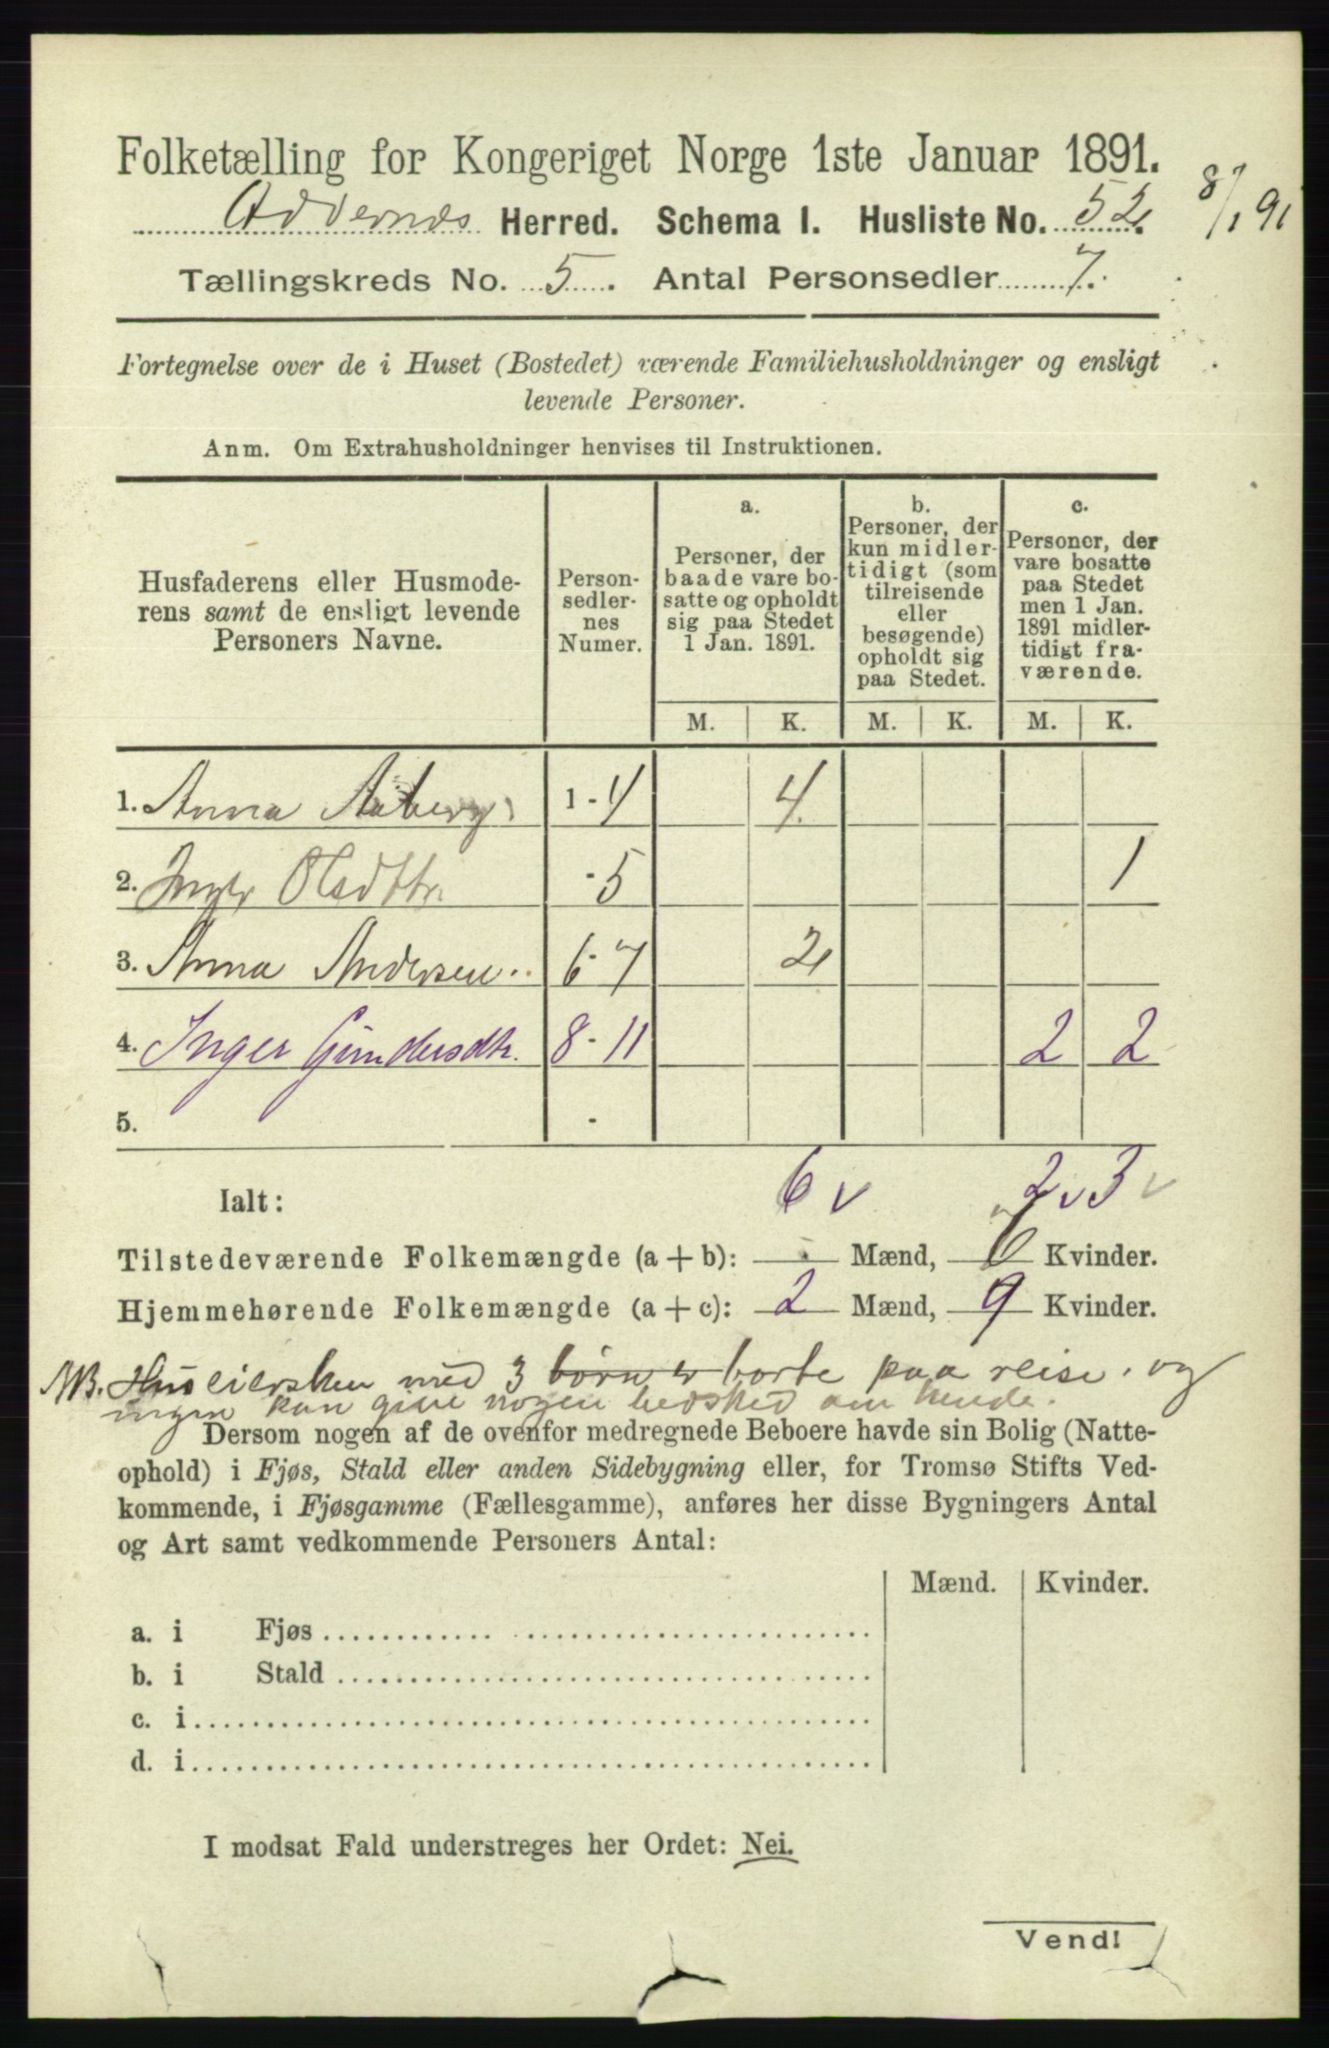 Folketælling for Kongeriget Norge 1ste Januar 1891.
Oddernes Herred. Schema I. Husliste No. 52. 8/1 91
Tællingskreds No. 5. Antal Personsedler 7.
Fortegnelse over de i Huset (Bostedet) værende Familiehusholdninger og ensligt
levende Personer.
Anm. Om Extrahusholdninger henvises til Instruktionen.
Husfaderens eller Husmode-
rens samt de ensligt levende
Personers Navne.
Person-
sedler-
nes
Numer.
a.
Personer, der
baade vare bo-
satte og opholdt
sig paa Stedet
1 Jan. 1891.
b.
Personer, der
kun midler-
tidigt (som
tilreisende
eller
besøgende)
opholdt sig
paa Stedet.
c.
Personer, der
vare bosatte
paa Stedet
men 1 Jan.
1891 midler-
tidigt fra-
værende.
M. K. M. K. M. K.
1. Anna Aaberg 1-4 4.
2. Inger Olsdtr. -5 1
3. Anna Andersen 6-7 2
4. Inger Gundersdtr. 8-11 2 2
5. -
Ialt: 6 v 2 v 3 v
Tilstedeværende Folkemængde (a + b): - Mænd, 6 Kvinder.
Hjemmehørende Folkemængde (a + c): 2 Mænd, 9 Kvinder.
NB. Huseiersken med 3 børn er borte paa reise, og
ingen kan give nogen besked om hende.
Dersom nogen af de ovenfor medregnede Beboere havde sin Bolig (Natte-
ophold) i Fjøs, Stald eller anden Sidebygning eller, for Tromsø Stifts Ved-
kommende, i Fjøsgamme (Fællesgamme), anføres her disse Bygningers Antal
og Art samt vedkommende Personers Antal:
Mænd. Kvinder.
a. i Fjøs
b. i Stald
c. i
d. i
I modsat Fald understreges her Ordet: Nei.
Vend!